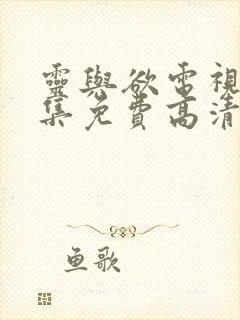 靈與欲電視
集免費高清
鱼歌